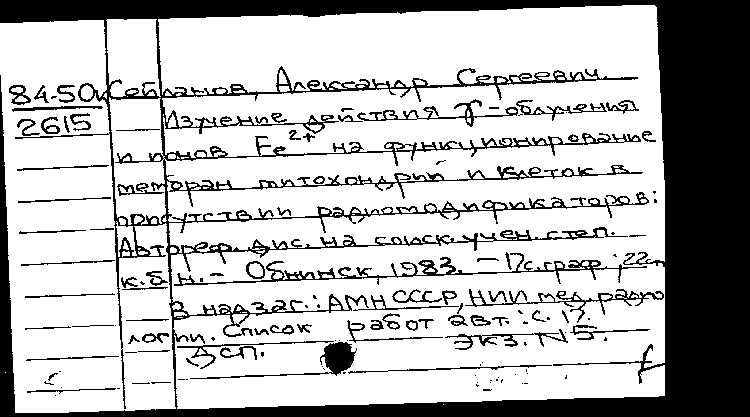 84-50к Сейланов, Александр Сергеевич.
2615 Изучение действия γ-облучения
и ионов Fe²⁺ на функционирование
мембран митохондрий и клеток в
присутствии радиомодификаторов:
Автореф. дис. на соиск. учен. степ.
к.б.н. - Обнинск, 1983. - 17с. граф.; 22см
В надзаг.: АМН СССР, НИИ мед. радио
логии. Список работ авт.: с. 17.
ДСП. Экз. N5.